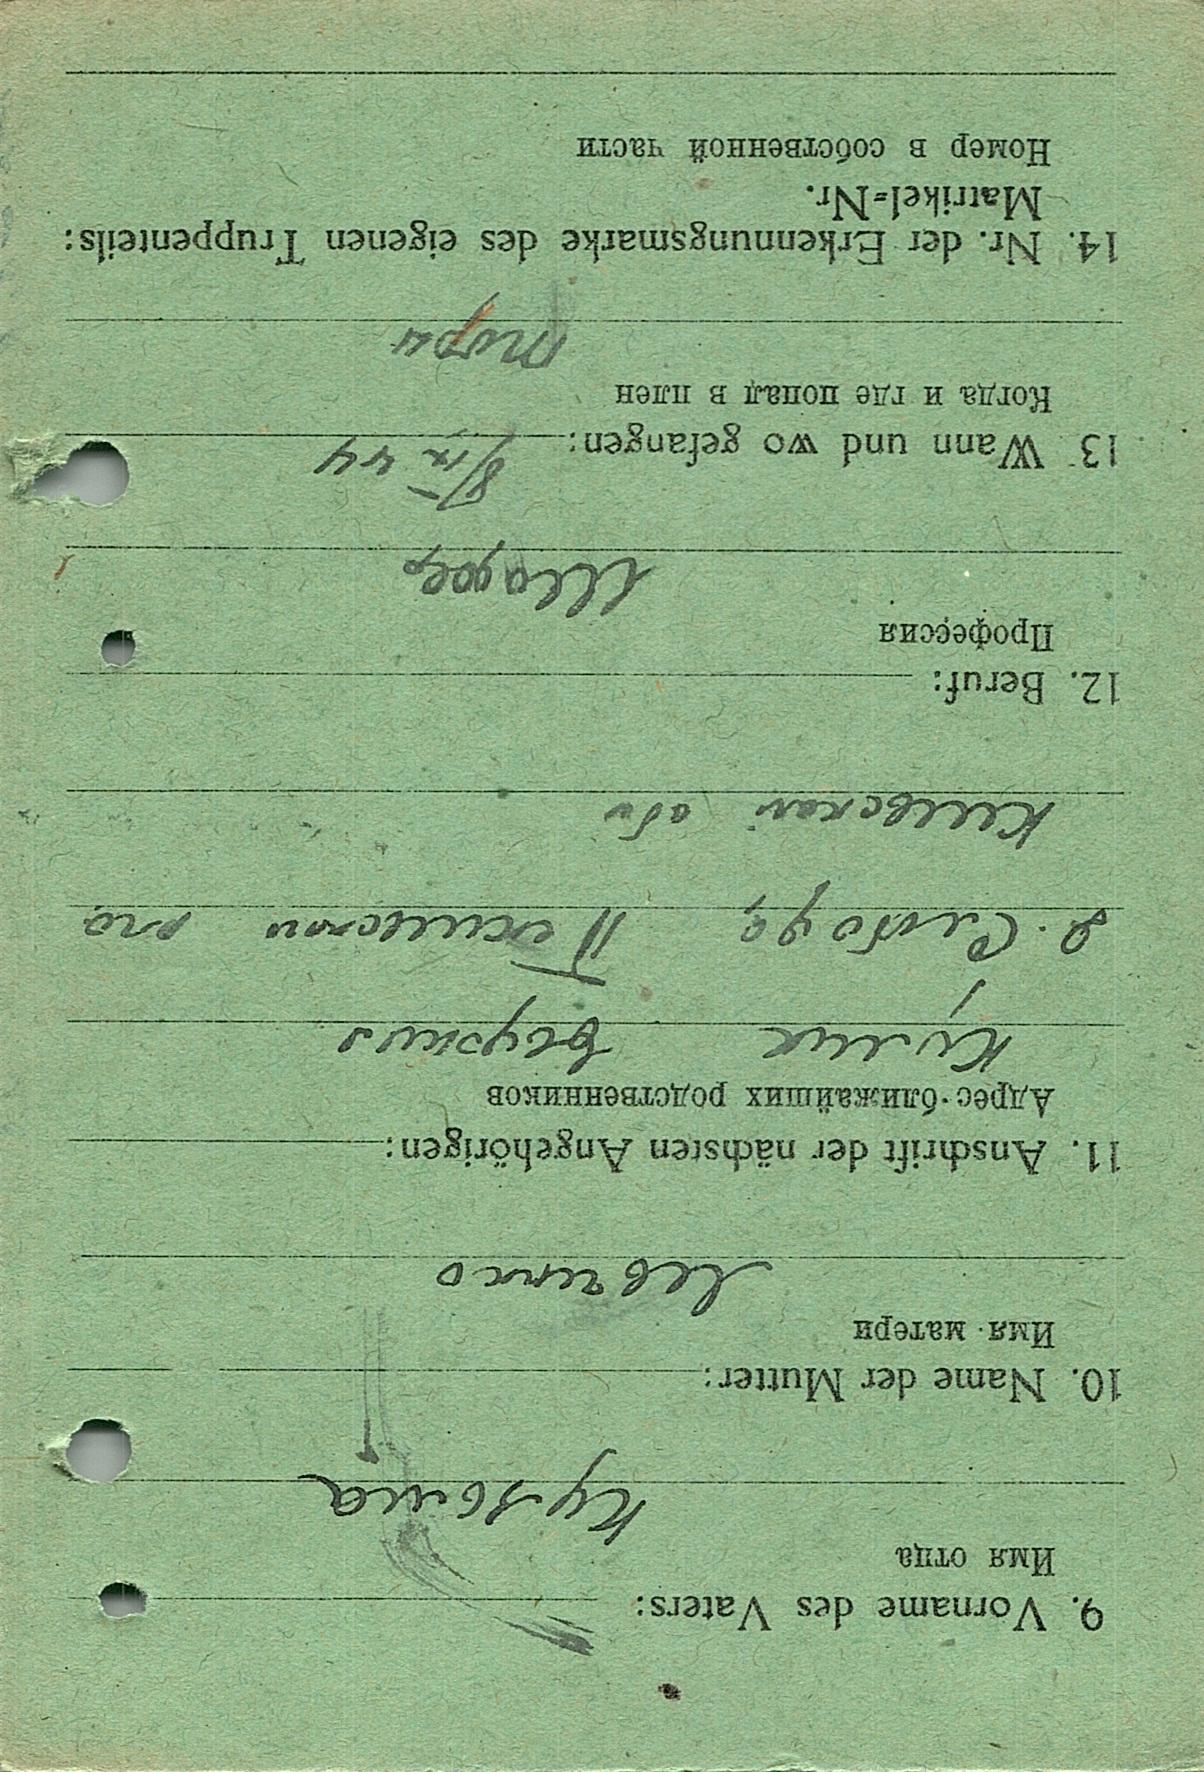 9. Vorname des Vaters:
Имя отца
Кузьма
10. Name der Mutter:
Имя матери
Левченко
11. Anschrift der nächsten Angehörigen:
Адрес ближайших родственников
Кулик
д. Слобода,
Киевской обл
12. Beruf:
Профессия
Шофер
13 Wann und wo gefangen:
8/IX 44
Когда и где попад в плен
14. Nr. der Erkennungsmarke des eigenen Truppenteils:
Matrikel=Nr.
Номер в собственной части